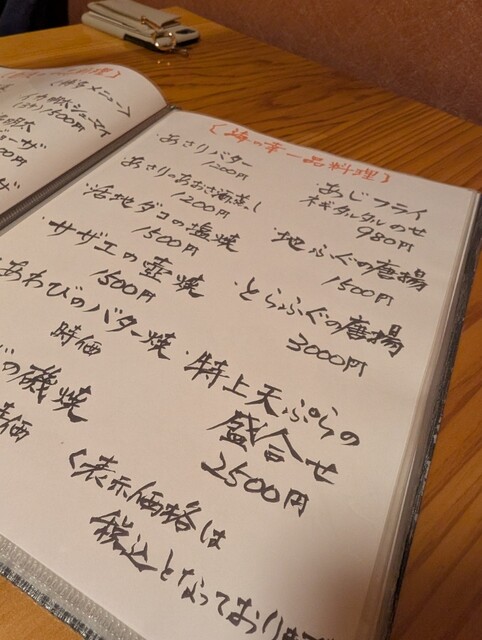 〔海の幸一品料理〕
・あさりバター
1200円
・あさりのあおさ酒蒸し
1200円
・活地ダコの塩焼
1500円
・サザエの壺焼
1500円
あわびのバター焼
時価
びの磯焼
時価
・あじフライ
ネギタルタルのせ
980円
・地ふぐの唐揚
1500円
・とらふぐの唐揚
3000円
・特上天ぷらの
盛合せ
2500円
〈表示価格は
税込となっております